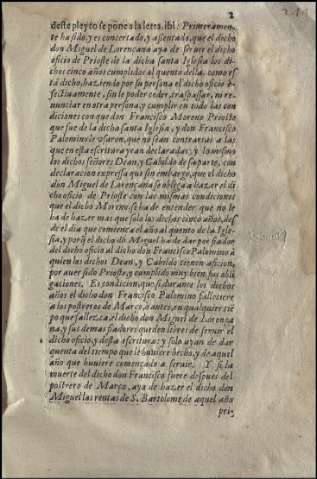 2
deste pleyto se pone a la letra. Ibi: Primeramen-
te ha sido, y es concertado, y assentado, que el dicho
don Miguel de Lorençana aya de seruir el dicho
oficio de Prioste de la dicha santa Iglesia los di-
chos cinco años cumplidos al quento della, como es-
tà dicho, haziendo por su persona el dicho oficio è-
fectiuamente, sin le poder ceder, traspassar, ni re-
nunciar en otra persona, y cumplir en todo las con
diciones con que don Francisco Moreno Prioste
que fue de la dicha santa Iglesia, y don Francisco
Palomino le vsaron, que no sean contrarias a las
que en esta escritura yràn declaradas, y lo mismo
los dichos señores Dean, y Cabildo de su parte, con
declaracion expressa que sin embargo, que el dicho
don Miguel de Lorençana se obliga a hazer el di
cho oficio de Prioste con las mismas condiciones
que el dicho Moreno se ha de entender que no le
ha de hazer mas que solo los dichos cinco años, des
de el dia que comiença el año al quento de la Igle-
sia, y por si el dicho dō Miguel ha de dar por fiador
del dicho oficio al dicho don Francisco Palomino à
quien los dichos Dean, y Cabildo tienen aficion,
por auer sido Prioste, y cumplido muy bien sus obli
gaciones. Es condicion, que si durante los dichos
años el dicho don Francisco Palomino falleciere
a los postreros de Março, ò antes, en qualquier tiē
po que fallezca, el dicho don Miguel de Lorença
na, y sus demas fiadores queden libres de seruir el
dicho oficio, y desta escritura; y solo ayan de dar
quenta del tiempo que le huuiere hecho, y de aquel
año que huuiere començado a seruir. Y si la
muerte del dicho don Francisco fuere despues del
postrero de Março, aya de hazer el dicho don
Miguel las rentas de S. Bartolome, de aquel año